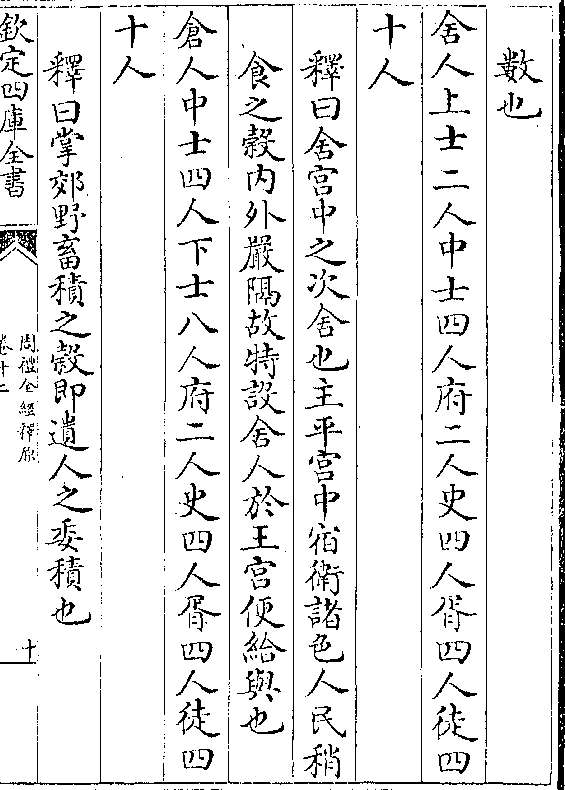 數也
舍人上士二人中士四人府二人史四人胥四人徒四
十人
釋曰舍宫中之次舍也主平宫中宿衛諸色人民稍
食之穀内外嚴隔故特設舍人於王宫便給與也
倉人中士四人下士八人府二人史四人胥四人徒四
十人
釋曰掌郊野畜積之穀即遺人之委積也
欽定四庫全書
周禮全經釋原
卷十二
十